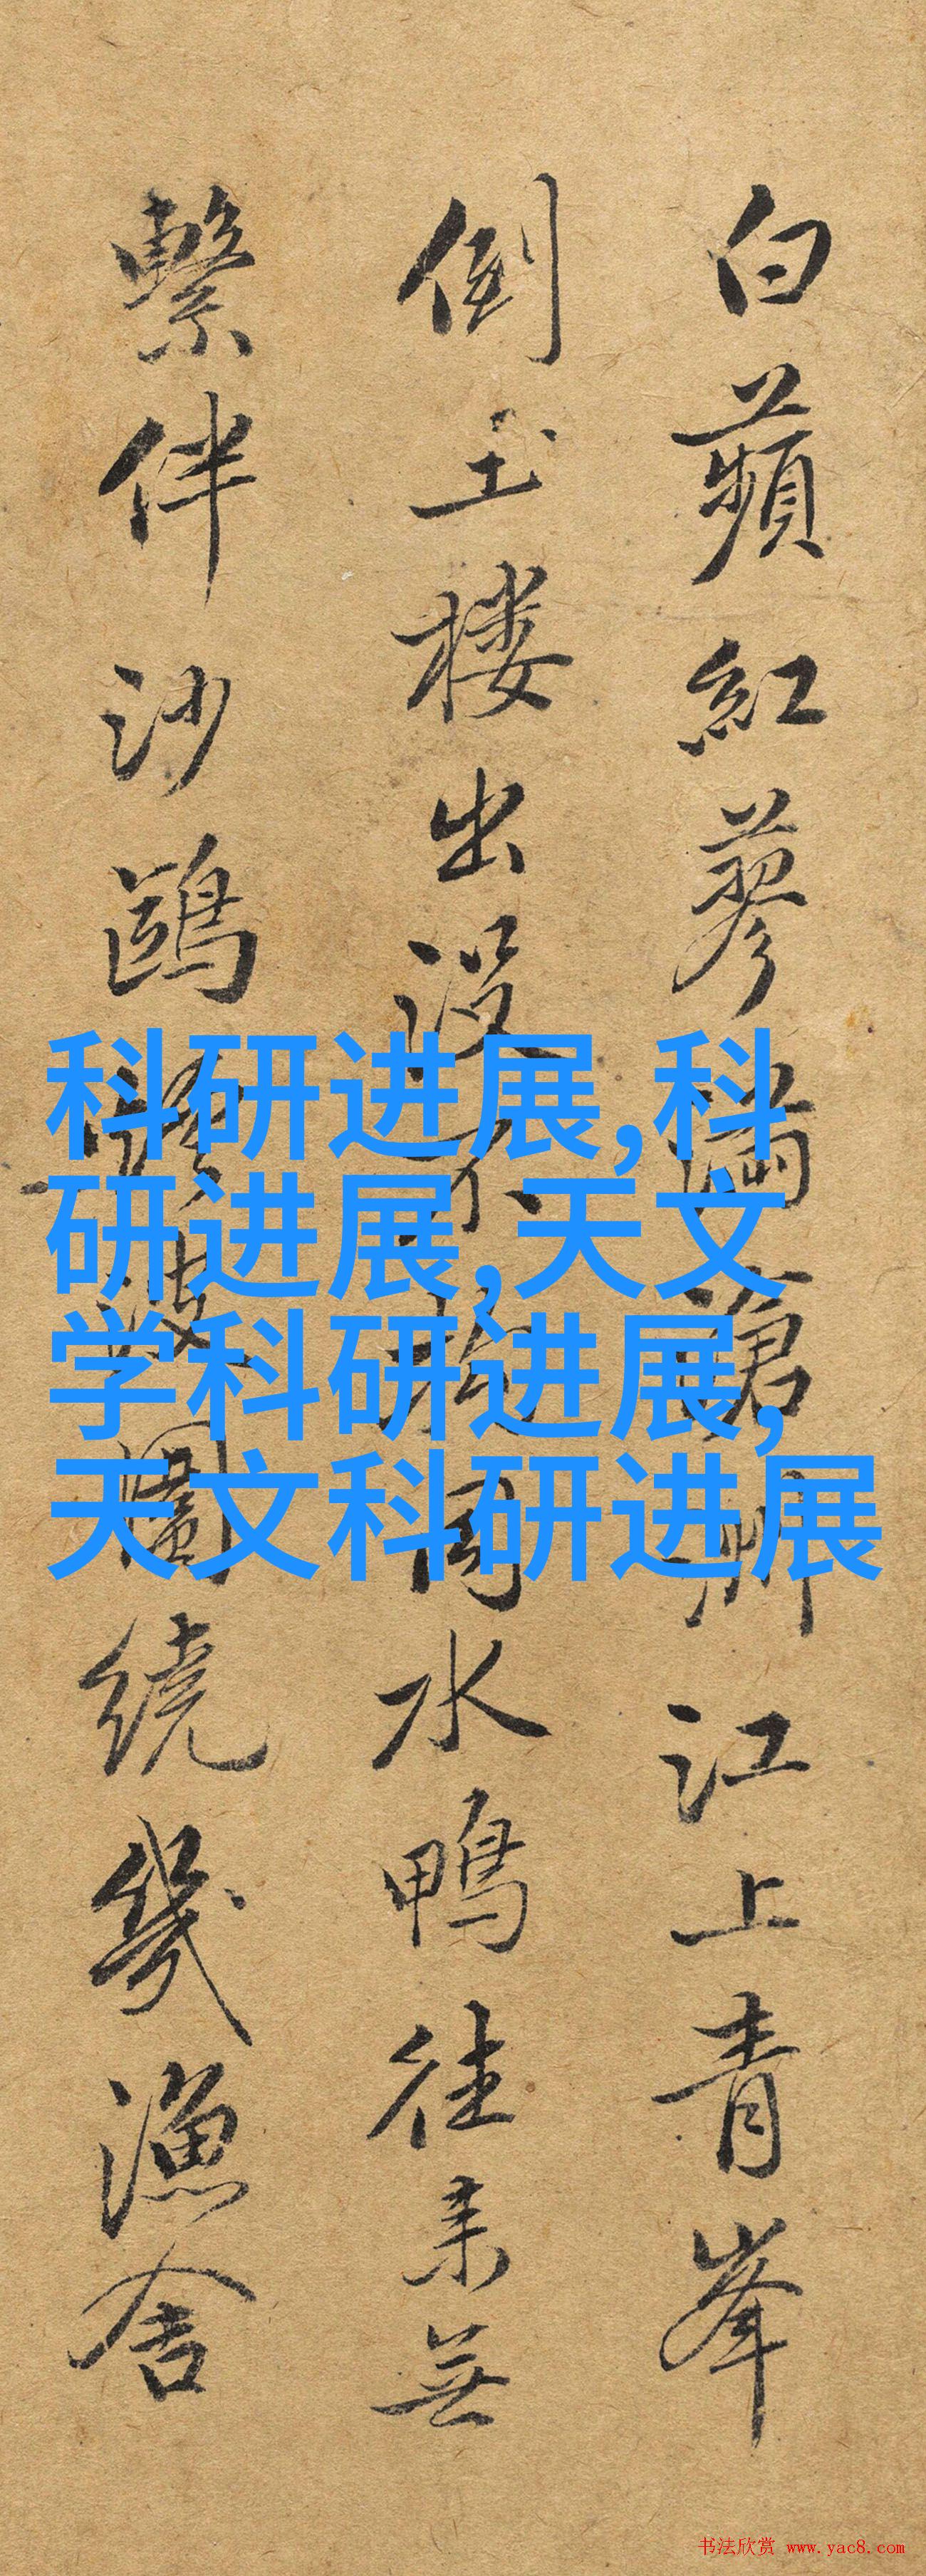 白蘋紅蓼滿滄洲江上青峯
倒玉楼出沒不拘同水鴨往来無
繫伴沙鷗波圍繞幾漁舍
科研进展,科
研进展,天文
学科研进展,
天文科研进展
书法欣赏 www.yac8.com